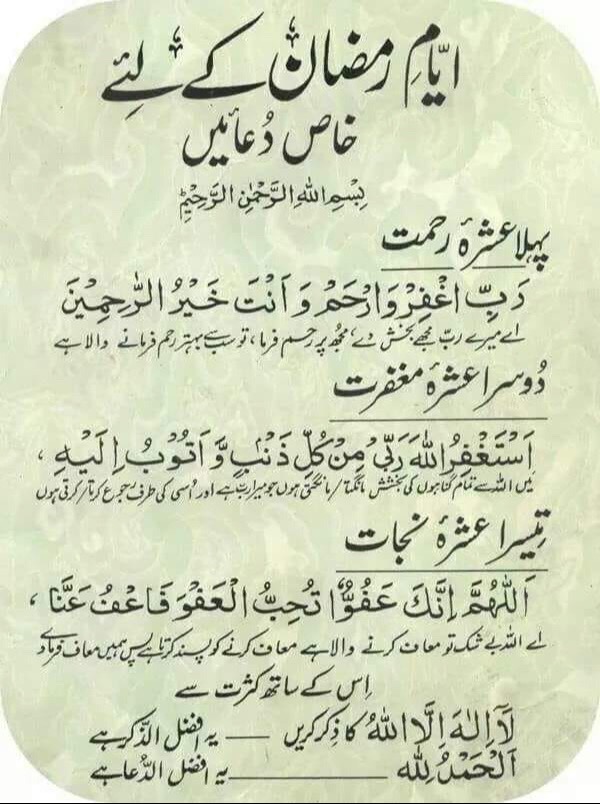 ایّامِ رمضان کے لئے
خاص دُعائیں
بِسْمِ اللهِ الرَّحْمٰنِ الرَّحِيْمِ
پہلا عشرۂ رحمت
رَبِّ اغْفِرْ وَارْحَمْ وَاَنْتَ خَيْرُ الرّٰحِمِيْنَ
اے میرے ربّ مجھے بخش دے، مجھ پر رحم فرما، تو سب سے بہتر رحم فرمانے والا ہے
دُوسرا عشرۂ مغفرت
اَسْتَغْفِرُ اللهَ رَبِّیْ مِنْ كُلِّ ذَنْۢبٍ وَّاَتُوْبُ اِلَيْهِ ،
میں اللہ سے تمام گناہوں کی بخشش مانگتا/مانگتی ہوں جو میرا ربّ ہے اور اُسی کی طرف رجوع کرتا/کرتی ہوں
تیسرا عشرۂ نجات
اَللّٰهُمَّ اِنَّكَ عَفُوٌّ تُحِبُّ الْعَفْوَ فَاعْفُ عَنَّا ،
اے اللہ بے شک تو معاف کرنے والا ہے معاف کرنے کو پسند کرتا ہے پس ہمیں معاف فرما دے
اِس کے ساتھ کثرت سے
لَآ اِلٰهَ اِلَّا اللهُ کا ذکر کریں — یہ افضل الذّکر ہے
اَلْحَمْدُ لِلّٰهِ — یہ افضل الدُّعا ہے